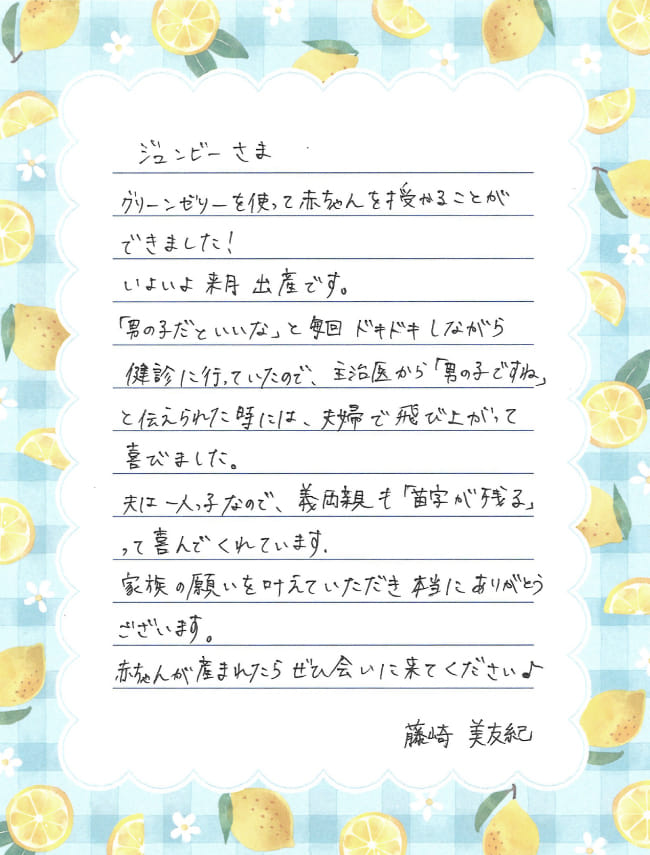 ジュンビーさま
グリーンゼリーを使って赤ちゃんを授かることが
できました！
いよいよ来月出産です。
「男の子だといいな」と毎回ドキドキしながら
健診に行っていたので、主治医から「男の子ですね」
と伝えられた時には、夫婦で飛び上がって
喜びました。
夫は一人っ子なので、義両親も「苗字が残る」
って喜んでくれています.
家族の願いを叶えていただき本当にありがとう
ございます。
赤ちゃんが産まれたらぜひ会いに来てください♪
藤崎 美友紀